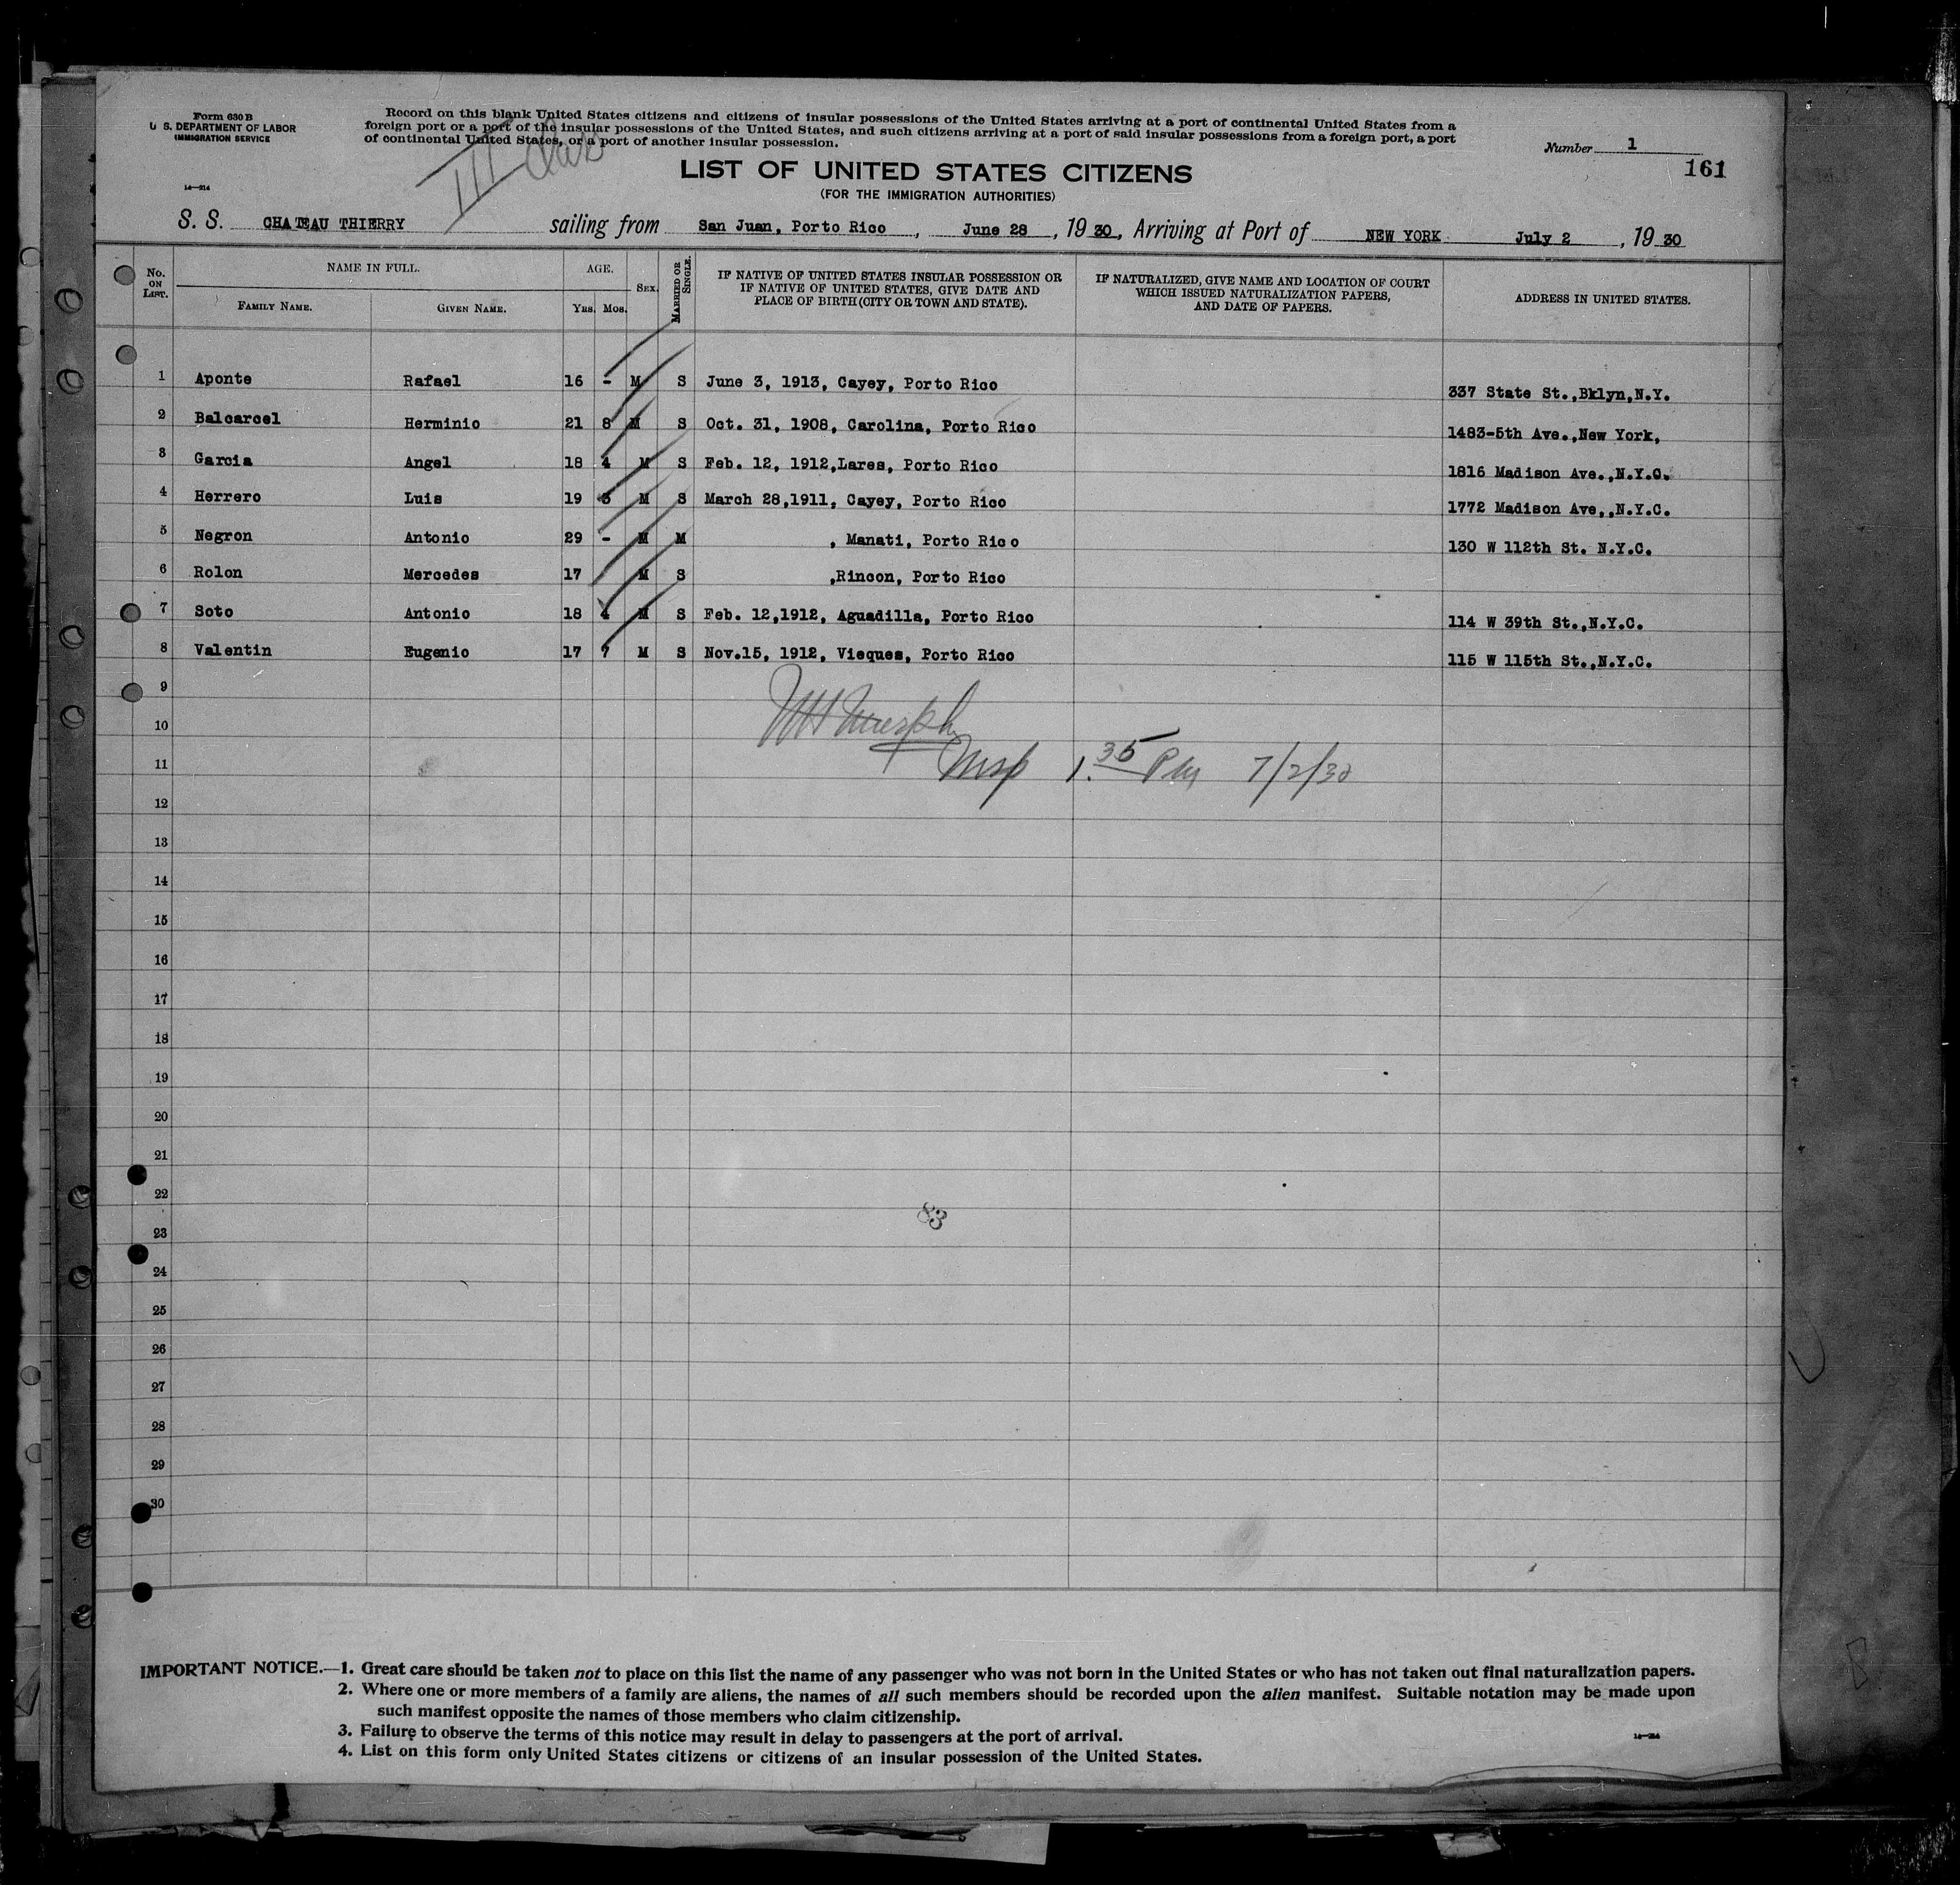 Form 630 B
U. S. DEPARTMENT OF LABOR
IMMIGRATION SERVICE
14—214
Record on this blank United States citizens and citizens of insular possessions of the United States arriving at a port of continental United States from a
foreign port or a port of the insular possessions of the United States, and such citizens arriving at a port of said insular possessions from a foreign port, a port
of continental United States, or a port of another insular possession.
III
LIST OF UNITED STATES CITIZENS
(FOR THE IMMIGRATION AUTHORITIES)
Number 1
161
S. S. CHATEAU THIERRY sailing from San Juan, Porto Rico, June 28, 19 30, Arriving at Port of NEW YORK July 2, 19 30
No. ON LIST.
NAME IN FULL.
FAMILY NAME.
GIVEN NAME.
AGE.
YRS. MOS.
SEX.
MARRIED OR SINGLE.
IF NATIVE OF UNITED STATES INSULAR POSSESSION OR
IF NATIVE OF UNITED STATES, GIVE DATE AND
PLACE OF BIRTH (CITY OR TOWN AND STATE).
IF NATURALIZED, GIVE NAME AND LOCATION OF COURT
WHICH ISSUED NATURALIZATION PAPERS,
AND DATE OF PAPERS.
ADDRESS IN UNITED STATES.
1 Aponte Rafael 16 - M S June 3, 1913, Cayey, Porto Rico 337 State St.,Bklyn,N.Y.
2 Balcarcel Herminio 21 8 M S Oct. 31, 1908, Carolina, Porto Rico 1483-5th Ave.,New York,
3 Garcia Angel 18 4 M S Feb. 12, 1912,Lares, Porto Rico 1816 Madison Ave.,N.Y.C.
4 Herrero Luis 19 3 M S March 28,1911, Cayey, Porto Rico 1772 Madison Ave,,N.Y.C.
5 Negron Antonio 29 - M M , Manati, Porto Rico 130 W 112th St. N.Y.C.
6 Rolon Mercedes 17 M S ,Rincon, Porto Rico
7 Soto Antonio 18 4 M S Feb. 12,1912, Aguadilla, Porto Rico 114 W 39th St.,N.Y.C.
8 Valentin Eugenio 17 7 M S Nov.15, 1912, Vieques, Porto Rico 115 W 115th St.,N.Y.C.
9
10
Insp 1.35 PM 7/2/30
11
12
13
14
15
16
17
18
19
20
21
22
83
23
24
25
26
27
28
29
30
IMPORTANT NOTICE.—1. Great care should be taken not to place on this list the name of any passenger who was not born in the United States or who has not taken out final naturalization papers.
2. Where one or more members of a family are aliens, the names of all such members should be recorded upon the alien manifest. Suitable notation may be made upon
such manifest opposite the names of those members who claim citizenship.
3. Failure to observe the terms of this notice may result in delay to passengers at the port of arrival.
4. List on this form only United States citizens or citizens of an insular possession of the United States.
14—214